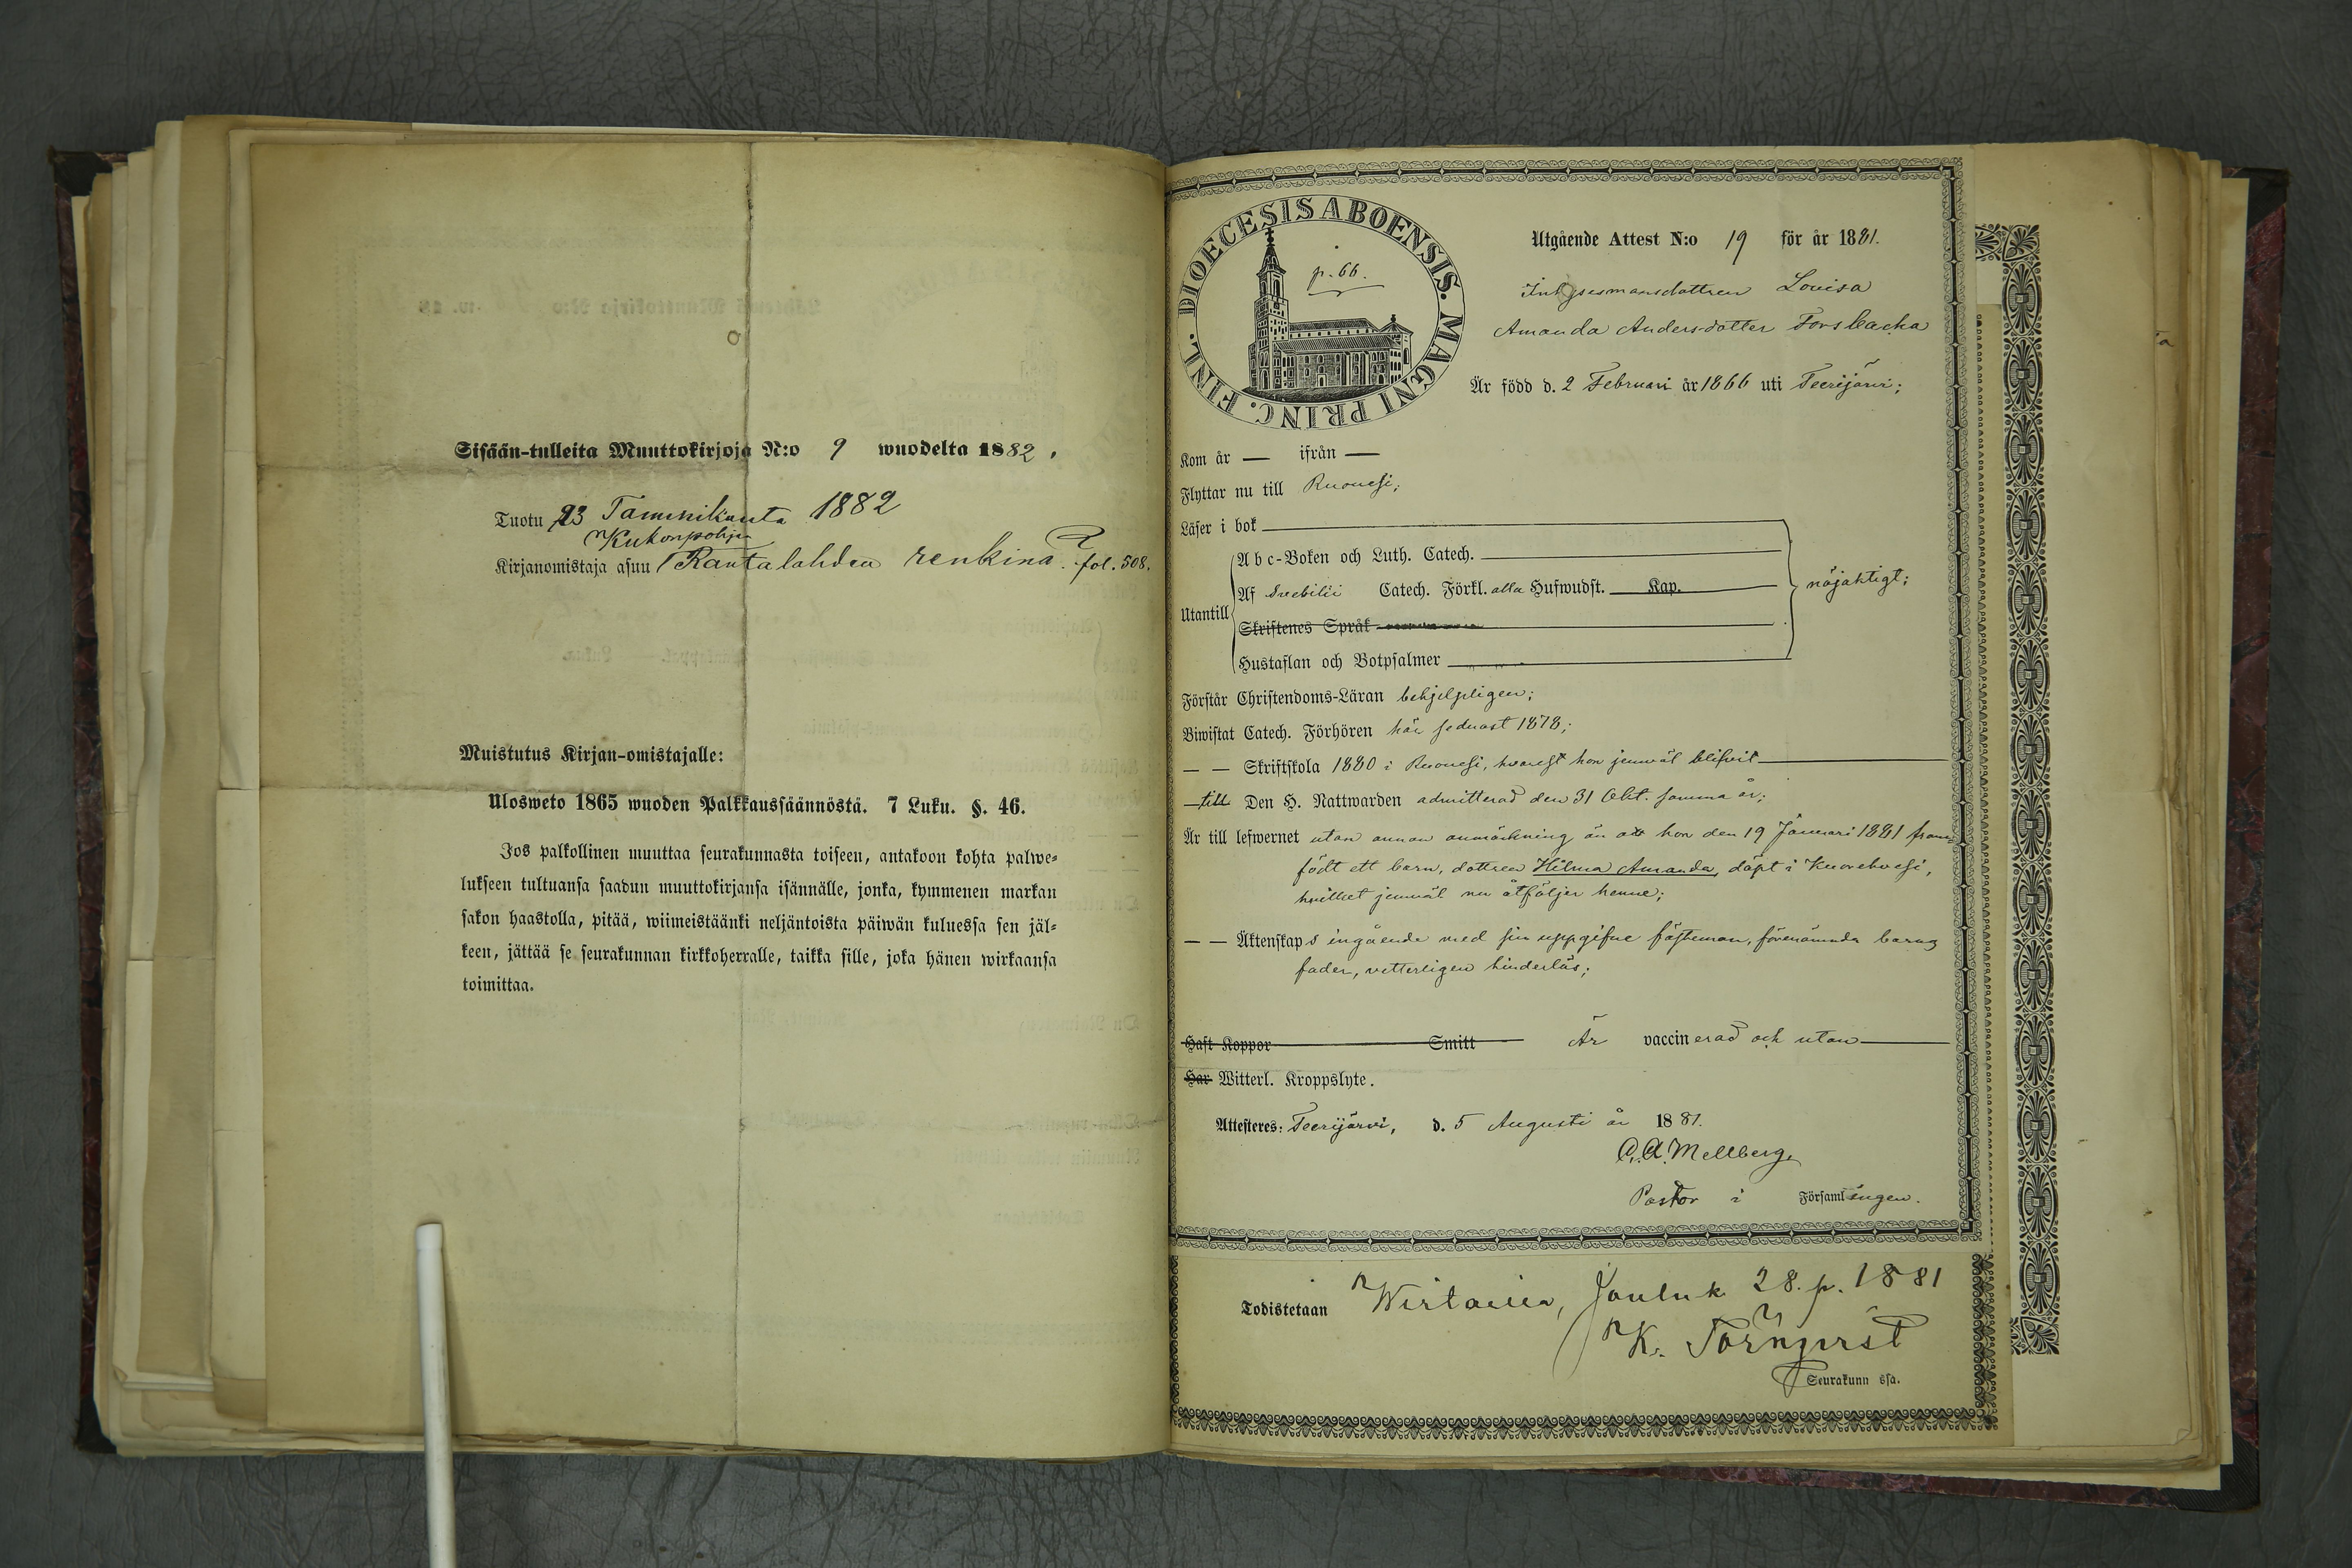 Sisään-tulleita Muuttokirjoja N:o 9 wuodelta 1882.
Tuotu 23 Tammikuuta 1882
Kukonpohja
Kirjanomistaja asuu Rantalahden renkinä fol. 508.
Muistutus Kirjan-omistajalle:
Ulosweto 1865 wuoden Palkkaussäännöstä. 7 Luku. §. 46.
Jos palkollinen muuttaa seurakunnasta toiseen, antakoon kohta palwe-
lukseen tultuansa saadun muuttokirjansa isännälle, jonka, kymmenen markan
sakon haastolla, pitää, wiimeistäänki neljäntoista päiwän kuluessa sen jäl-
keen, jättää se seurakunnan kirkkoherralle, taikka sille, joka hänen wirkaansa
toimittaa.
DIOECESIS ABOENSIS. MAGNI PRINC. FINL.
p. 66.
Utgående Attest N:o 19 för år 1881.
Louisa
Amanda Andersdotter Forsbacka
Är född d. 2 Februari år 1866 uti Teerijärvi;
Kom år — ifrån —
Flyttar nu till Ruovesi;
Läser i bok
A b c-Boken och Luth. Catech.
Af Svebilii Catech. Förkl. alla Hufwudst. Kap.
nöjaktigt;
Utantill
Skriftenes Språk
Hustaflan och Botpsalmer
Förstår Christendoms-Läran behjelpligen;
Biwistat Catech. Förhören här sednast 1878;
— — Skriftskola 1880 i Ruovesi, hvarest hon jemväl blifvit
till Den H. Nattwarden admitterad den 31 Okt. samma år;
Är till lefwernet utan annan anmärkning än att hon den 19 Januari 1881 fram-
födt ett barn, dottren Hilma Amanda, döpt i Kuorehvesi,
hvilket jemväl nu åtföljer henne;
— — Äktenskaps ingående med sin uppgifne fästeman, förenämnda barns
fader, vetterligen hinderlös;
Haft Koppor Smitt Är vaccinerad och utan
Har Witterl. Kroppslyte.
Attesteres: Teerijärvi, d. 5 Augusti år 1881.
A. A. Mellberg
Pastor i Församlingen.
Todistetaan Jouluk 28. p. 1881
K. Törnqvist
Seurakunnassa.